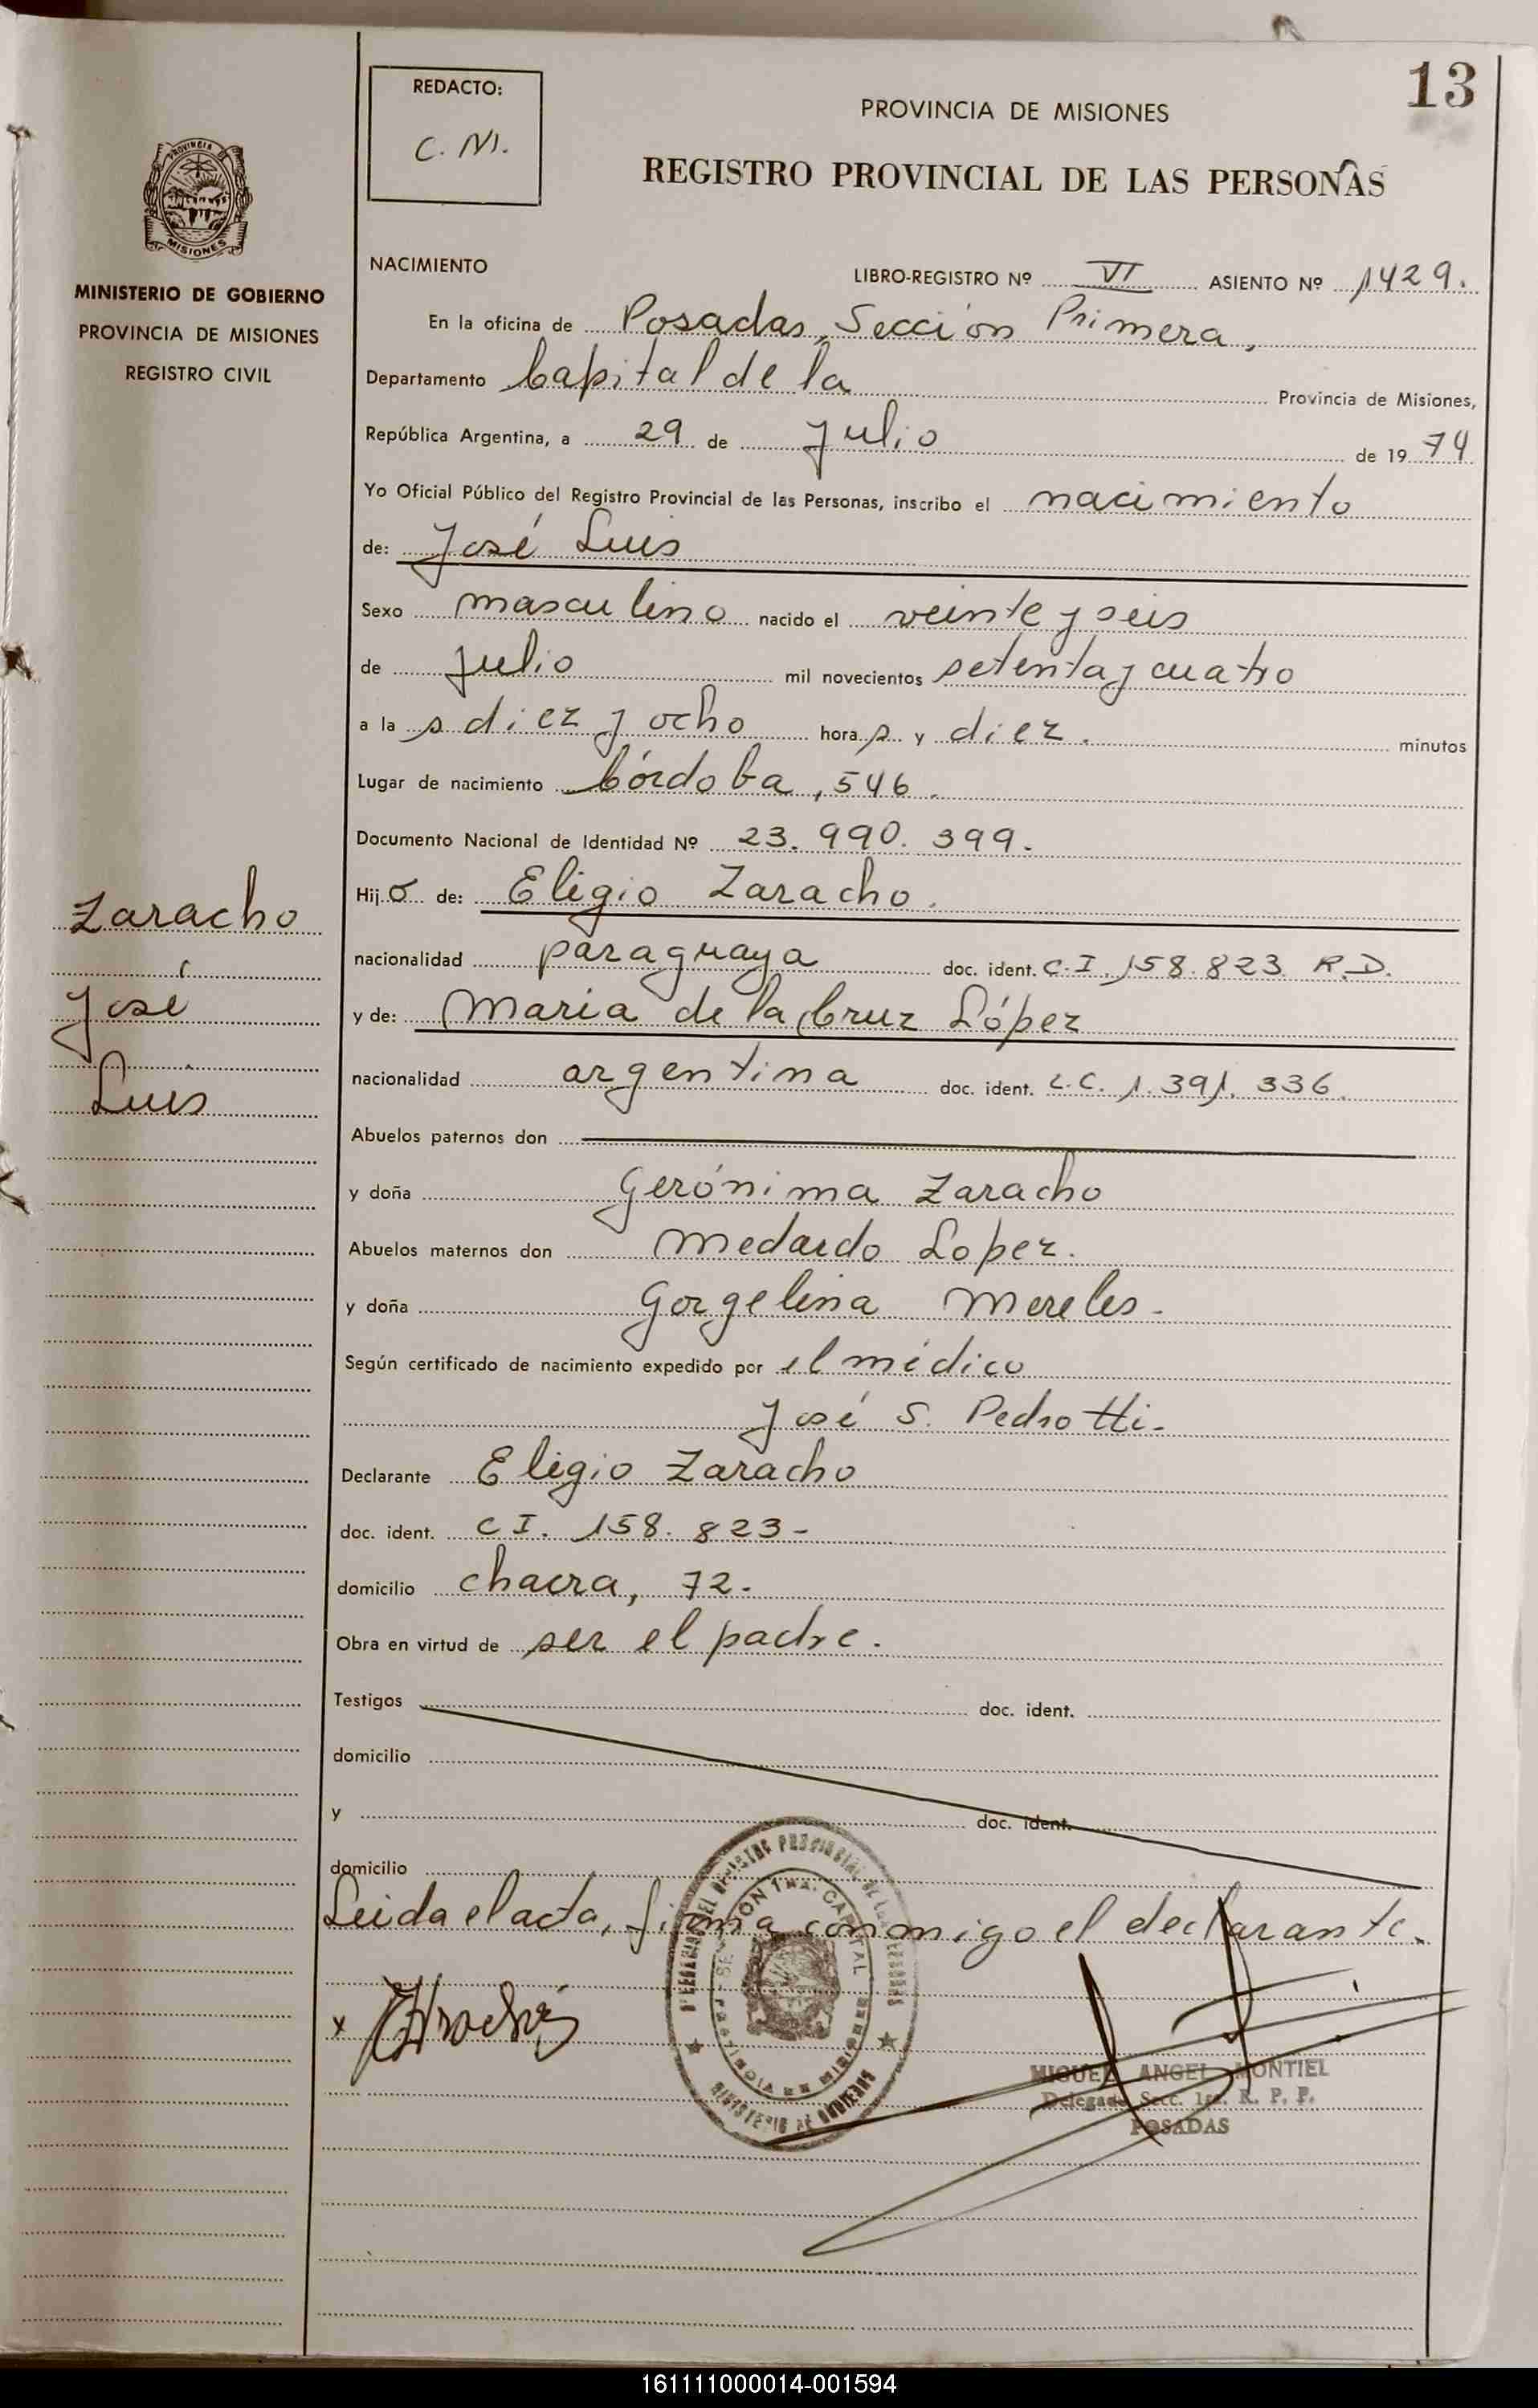 13
REDACTO:
C. M.
PROVINCIA DE MISIONES
REGISTRO PROVINCIAL DE LAS PERSONAS
PROVINCIA
MISIONES
MINISTERIO DE GOBIERNO
PROVINCIA DE MISIONES
REGISTRO CIVIL
NACIMIENTO
LIBRO-REGISTRO Nº VI ASIENTO Nº 1429.
En la oficina de Posadas, Sección Primera,
Departamento Capital de la Provincia de Misiones,
República Argentina, a 29 de Julio de 19 74
Yo Oficial Público del Registro Provincial de las Personas, inscribo el nacimiento
de: José Luis
Sexo masculino nacido el veinte y seis
de Julio mil novecientos setenta y cuatro
a la s diez y ocho hora s y diez. minutos
Lugar de nacimiento Córdoba, 546.
Documento Nacional de Identidad Nº 23. 990. 399.
Hij o de: Eligio Zaracho.
nacionalidad paraguaya doc. ident. C.I. 158.823 R.D.
y de: Maria de la Cruz López
nacionalidad argentina doc. ident. L.C. 1.391.336.
Zaracho
José
Luis
Abuelos paternos don
y doña Gerónima Zaracho
Abuelos maternos don Medardo Lopez.
y doña Gorgelina Mereles.
Según certificado de nacimiento expedido por el médico
José S. Pedrotti.
Declarante Eligio Zaracho
doc. ident. C I. 158. 823-
domicilio chacra, 72.
Obra en virtud de ser el padre.
Testigos doc. ident.
domicilio
y doc. ident.
domicilio
Leida el acta, firma conmigo el declarante.
x
MIGUEL ANGEL MONTIEL
Delegado Secc. 1ra. R. P. P.
POSADAS
161111000014-001594